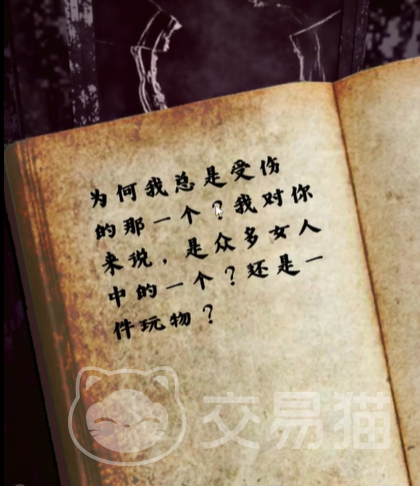 为何我总是受伤
的那一个？我对你
来说，是众多女人
中的一个？还是一
件玩物？
交易猫